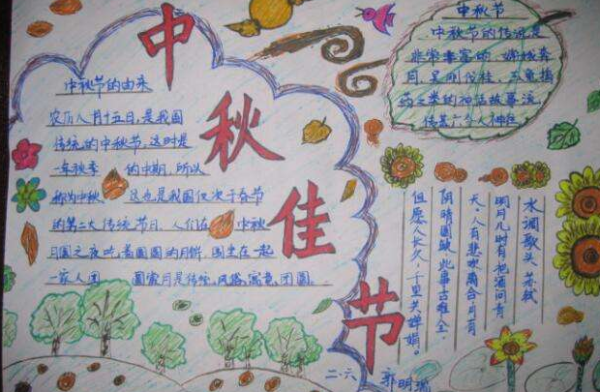 中秋佳节
中秋节的由来
农历八月十五日,是我国
传统的中秋节,这时是
一年秋季 的中期,所以
称为中秋 这也是我国仅次于春节
的第二大传统节日,人们在 中秋
月圆之夜吃着圆圆的月饼,围坐在一起
一家人团 圆赏月是传统,风俗,寓意,团圆。
中秋节
中秋节的传说是
非常丰富的,嫦娥奔
月,吴刚伐桂,玉兔捣
药之类的神话故事流
传甚广令人神往
水调歌头 苏轼
明月几时有把酒问青
天,人有悲欢离合月有
阴晴圆缺,此事古难全,
但愿人长久,千里共婵娟。
二·六
郭明